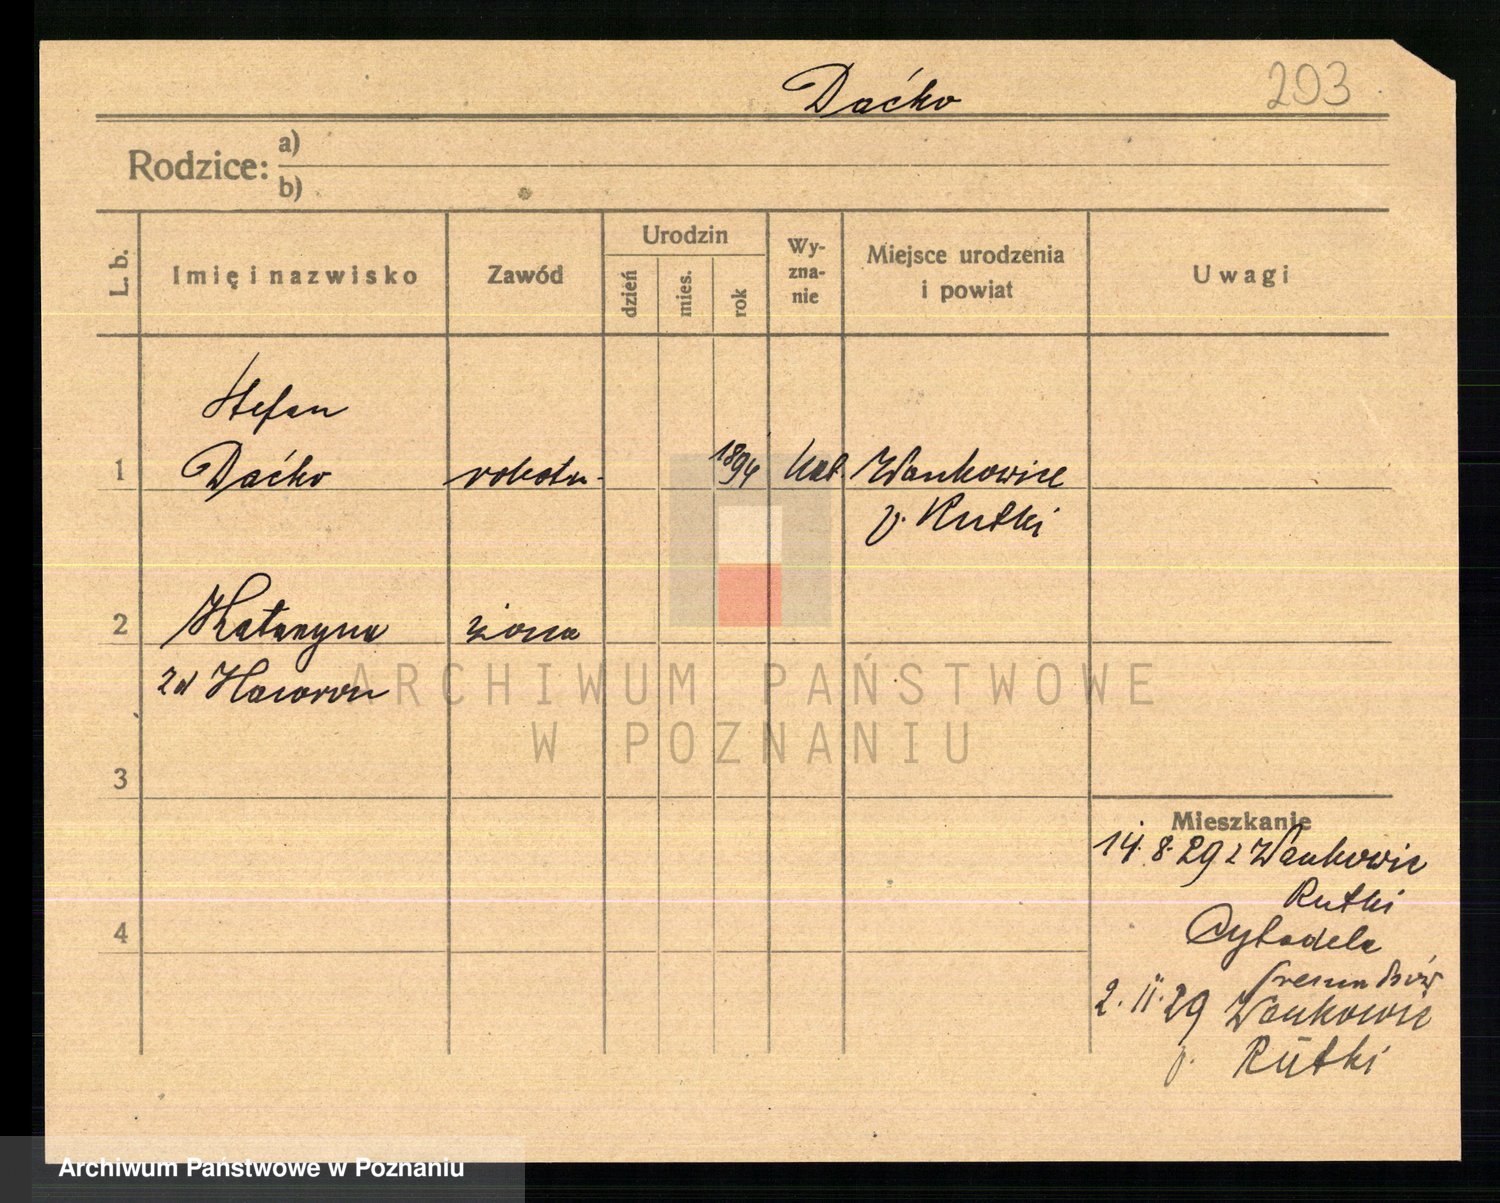 Daćko 203
Rodzice: a)
b)
L. b.
Imię i nazwisko
Zawód
Urodzin
dzień
mies.
rok
Wy-
zna-
nie
Miejsce urodzenia
i powiat
Uwagi
Stefan
1 Daćko robotn. 1894 kat. Wankowice
p. Rutki
2 Katarzyna żona
zd
ARCHIWUM PAŃSTWOWE
W POZNANIU
3
Mieszkanie
14. 8. 29 z Wankowic
Rutki
4 Cytadela
2. 11. 29 Wankowic
p. Rutki
Archiwum Państwowe w Poznaniu